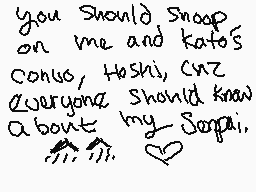 you should snoop
on me and kato's
convo, Hoshi, cuz
everyone should know
about my Senpai.